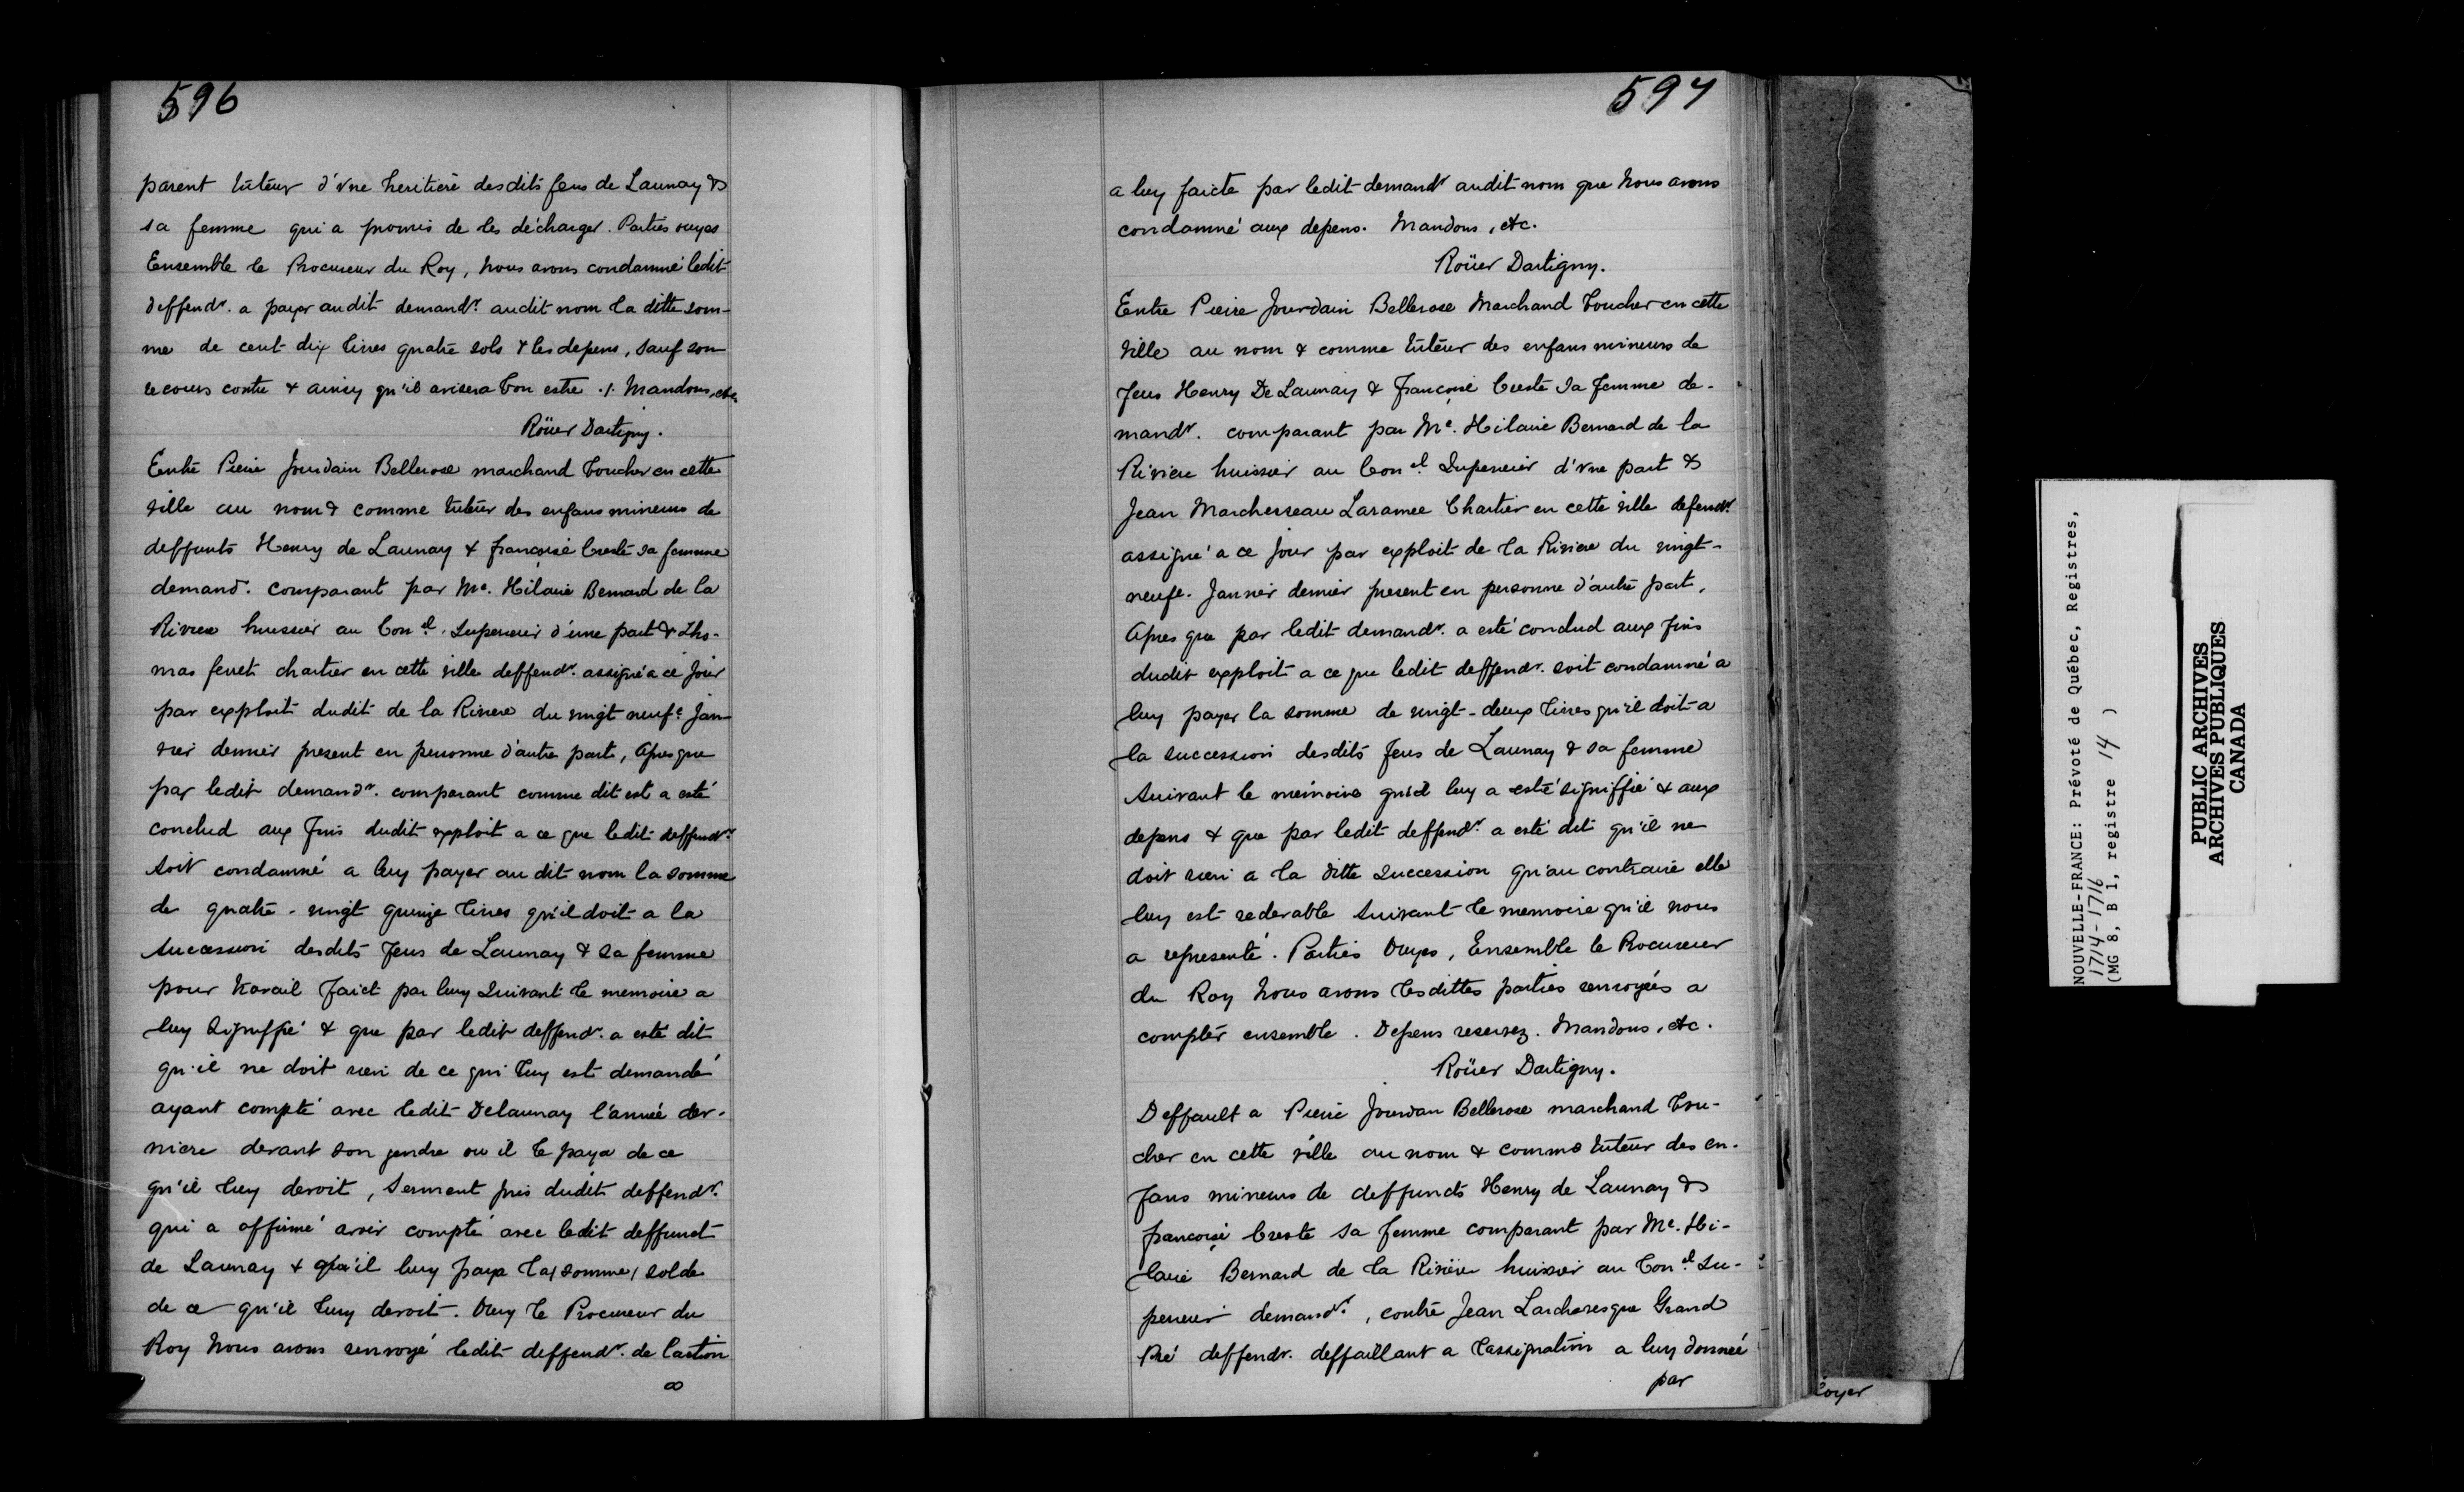 596
parent tuteur d'vne heritiere desdits feus de Launay &
sa femme qui a promis de les décharger. Parties ouyes
Ensemble le Procureur du Roy, nous avons condamné ledit
deffendr. a payer audit demandr. audit nom la ditte som-
me de cent dix livres quatre sols & les depens, sauf son
recours contre & ainsy qu'il avisera bon estre ./. Mandons, etc.
Roüer Dartigny.
Entre Pierre Jourdain Bellerose marchand boucher en cette
ville au nom & comme tuteur des enfans mineurs de
deffunts Henry de Launay & françoise Creste sa femme
demandr. comparant par Me. Hilaire Bernard de la
Riviere huissier au Conel. Superieur d'une part & Tho-
mas feuet chartier en cette ville deffendr. assigné a ce jour
par exploit dudit de la Riviere du vingt neufe Jan-
vier dernier present en personne d'autre part, Apres que
par ledit demandr. comparant comme dit est a esté
conclud aux fins dudit exploit a ce que ledit deffendr.
soit condamné a luy payer au dit nom la somme
de quatre-vingt quinze livres qu'il doit a la
succession desdits feus de Launay & sa femme
pour travail faict par luy suivant le memoire a
luy signiffié & que par ledit deffendr. a esté dit
qu'il ne doit rien de ce qui luy est demandé
ayant compté avec ledit Delaunay l'année der-
niere devant son gendre ou il le paya de ce
qu'il luy devoit, Serment pris dudit deffendr.
qui a affirmé avoir compté avec ledit deffunct
de Launay & qu'il luy paya la (somme) solde
de ce qu'il luy devoit. Ouy le Procureur du
Roy Nous avons renvoyé ledit deffendr. de l'action
597
a luy faicte par ledit demandr audit nom que Nous avons
condamné aux depens. Mandons, etc.
Roüer Dartigny.
Entre Pierre Jourdain Bellerose Marchand boucher en cette
Ville au nom & comme tuteur des enfans mineurs de
feus Henry De Launay & françoise Creste sa femme de-
mandr. comparant par Me. Hilaire Bernard de la
Riviere huissier au Conel Superieur d'vne part &
Jean Marchesseau Laramee Chartier en cette ville defendr.
assigné a ce jour par exploit de la Riviere du vingt-
neufe. Janvier dernier present en personne d'autre part,
Apres que par ledit demandr. a esté conclud aux fins
dudit exploit a ce que ledit deffendr. soit condamné a
luy payer la somme de vingt-deux livres qu'il doit a
la succession desdits feus de Launay & sa femme
suivant le mémoire qu'il luy a esté signiffié & aux
depens & que par ledit deffendr. a esté dit qu'il ne
doit rien a la ditte succession qu'au contraire elle
luy est redevable suivant le memoire qu'il nous
a representé. Parties Ouyes, Ensemble le Procureur
du Roy Nous avons lesdittes parties renvoyées a
compter ensemble. Depens reservez. Mandons, etc.
Roüer Dartigny.
Deffault a Pierre Jourdan Bellerose marchand bou-
cher en cette ville au nom & comme tuteur des en-
fans mineurs de deffuncts Henry de Launay &
françoise Creste sa femme comparant par Me. Hi-
laire Bernard de la Riviere huissier au Conel Su-
perieur demandr., contre Jean Larchevesque Grand
Pré deffendr. deffaillant a l'assignation a luy donnée
par
loyer
NOUVELLE-FRANCE: Prévoté de Québec, Registres,
1714-1716
(MG 8, B 1, registre 14 )
PUBLIC ARCHIVES
ARCHIVES PUBLIQUES
CANADA